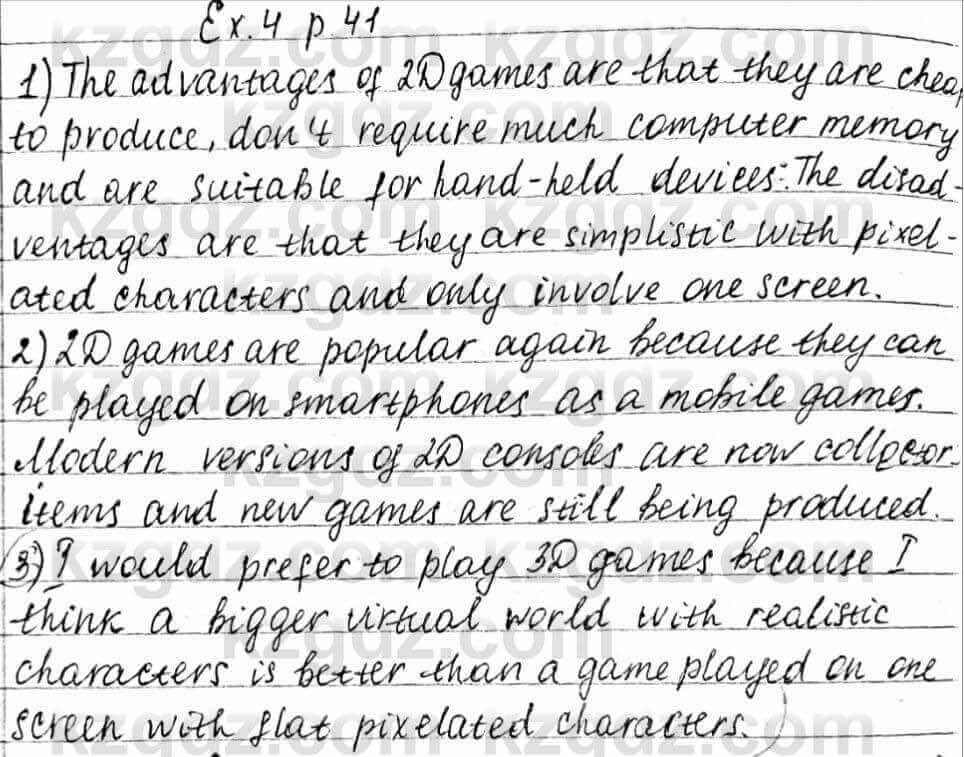 Ex. 4 p 41
1) The advantages of 2D games are that they are cheap
to produce, don't require much computer memory
and are suitable for hand-held devices. The disad-
ventages are that they are simplistic with pixel-
ated characters and only involve one screen.
2) 2D games are popular again because they can
be played on smartphones as a mobile games.
Modern versions of 2D consoles are now collector
items and new games are still being produced.
3) I would prefer to play 3D games because I
think a bigger virtual world with realistic
characters is better than a game played on one
screen with flat pixelated characters.
kzgdz.com